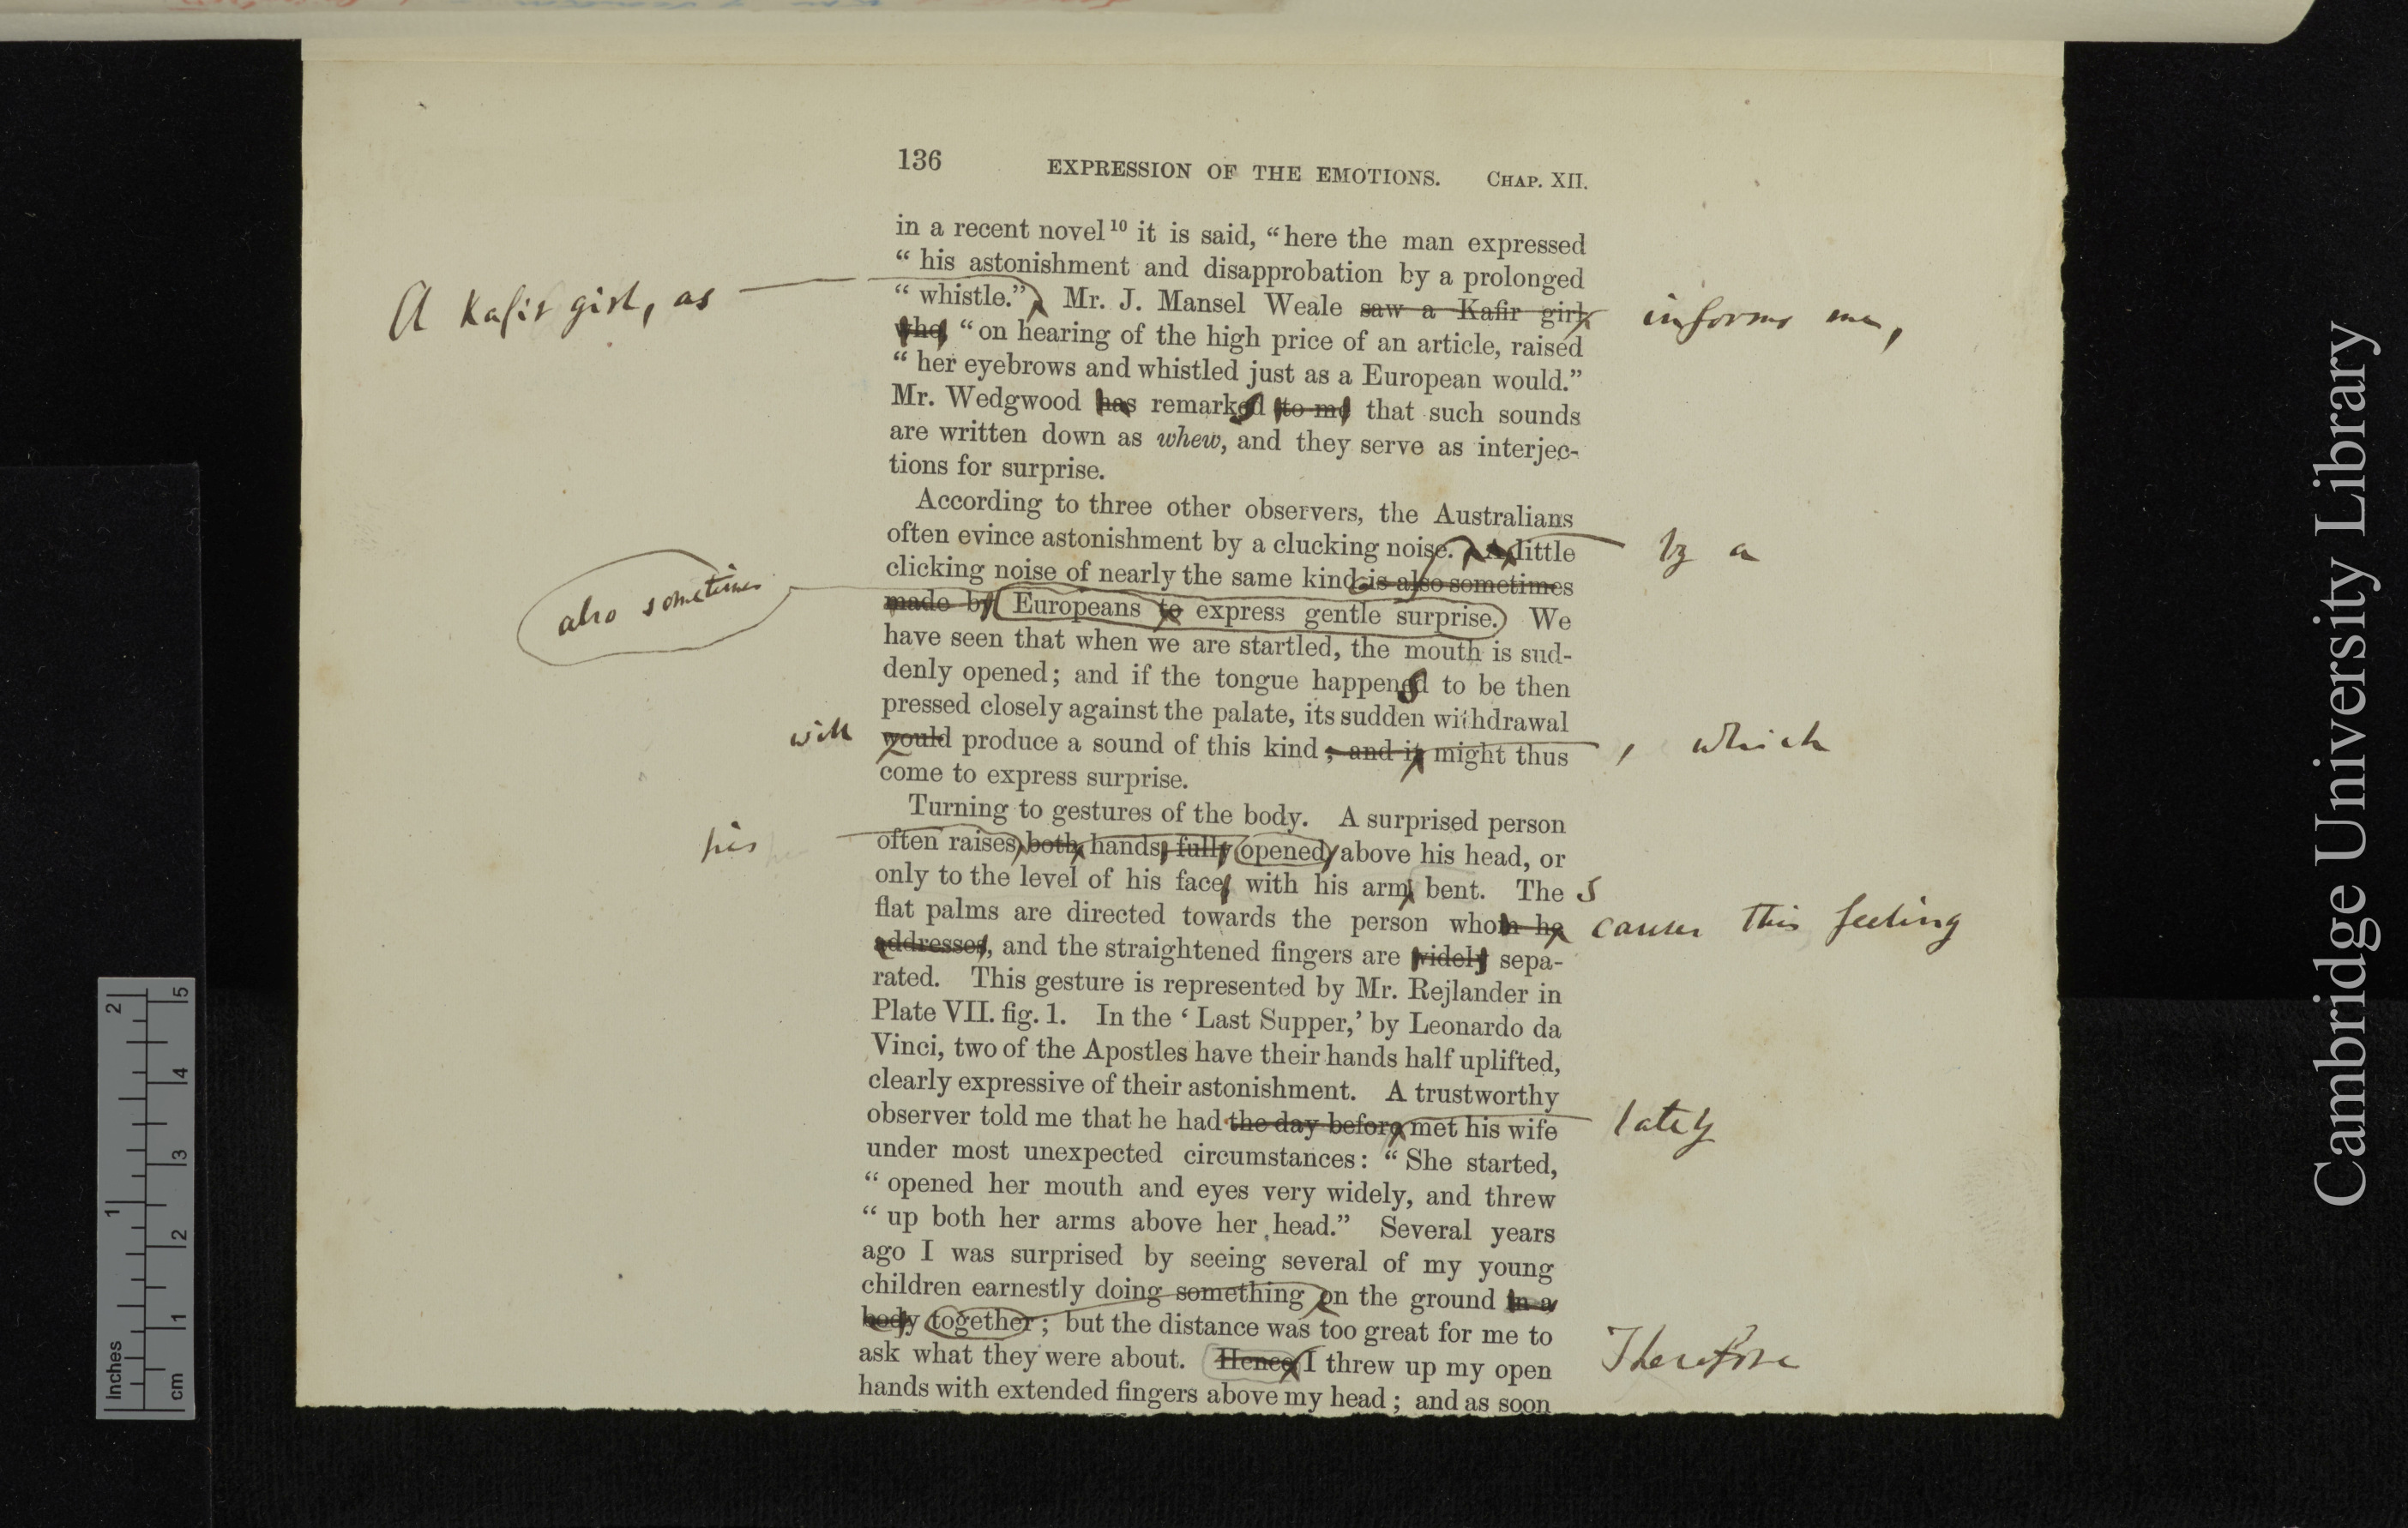 136 EXPRESSION OF THE EMOTIONS. CHAP. XII.
in a recent novel 10 it is said, “here the man expressed
“ his astonishment and disapprobation by a prolonged
A Kafir girl, as
“ whistle.” Mr. J. Mansel Weale saw a Kafir girl
informs me,
who, “on hearing of the high price of an article, raised
“ her eyebrows and whistled just as a European would.”
Mr. Wedgwood has remarked to me that such sounds
s
are written down as whew, and they serve as interjec-
tions for surprise.
According to three other observers, the Australians
often evince astonishment by a clucking noise. A little
by a
clicking noise of nearly the same kind is also sometimes
also sometimes
made by Europeans to express gentle surprise. We
have seen that when we are startled, the mouth is sud-
denly opened; and if the tongue happened to be then
s
pressed closely against the palate, its sudden withdrawal
will
would produce a sound of this kind ; and it might thus
, which
come to express surprise.
Turning to gestures of the body. A surprised person
his
often raises both hands, fully opened, above his head, or
only to the level of his face, with his arm bent. The
s
flat palms are directed towards the person whom he
causes this feeling
addresses, and the straightened fingers are widely sepa-
rated. This gesture is represented by Mr. Rejlander in
Plate VII. fig. 1. In the ‘ Last Supper,’ by Leonardo da
Vinci, two of the Apostles have their hands half uplifted,
clearly expressive of their astonishment. A trustworthy
observer told me that he had the day before met his wife
lately
under most unexpected circumstances: “ She started,
“ opened her mouth and eyes very widely, and threw
“ up both her arms above her head.” Several years
ago I was surprised by seeing several of my young
children earnestly doing something on the ground in a
body together ; but the distance was too great for me to
ask what they were about. Hence I threw up my open
Therefore
hands with extended fingers above my head ; and as soon
Inches 1 2
cm 1 2 3 4 5
Cambridge University Library